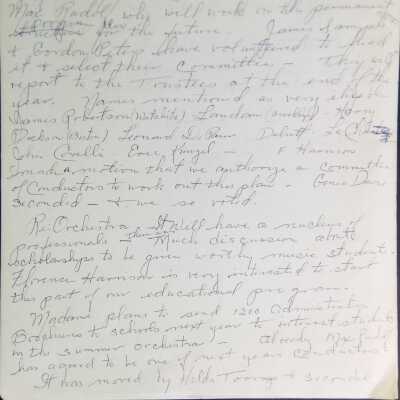 Max Rudolf, why will work on the permanent
structure for the future. James Sample
& Gordon Peters have volunteered to head
it & select their committee - They will
report to the Trustees at the end of the
year. Names mentioned as very able
James Robertson (Wichita) Landau Harry
Dickson (Boston) Leonard De Paur
John Covelli Eric Kunzel - F Harrison
made a motion that we authorize a committee
of Conductors to work out this plan - Genie Dean
seconded - & we so voted.
Re: Orchestra - It will have a nucleus of
professionals - Much discussion about
scholarships to be given worthy music students.
Florence Harrison is very interested to start
this part of our educational program.
Madame plans to send 1200 administrative
Brochures to schools next year to interest students
in the summer orchestra - Already Max Rudolf
has agreed to be one of next years Conductors
It was moved by Hilda & seconded